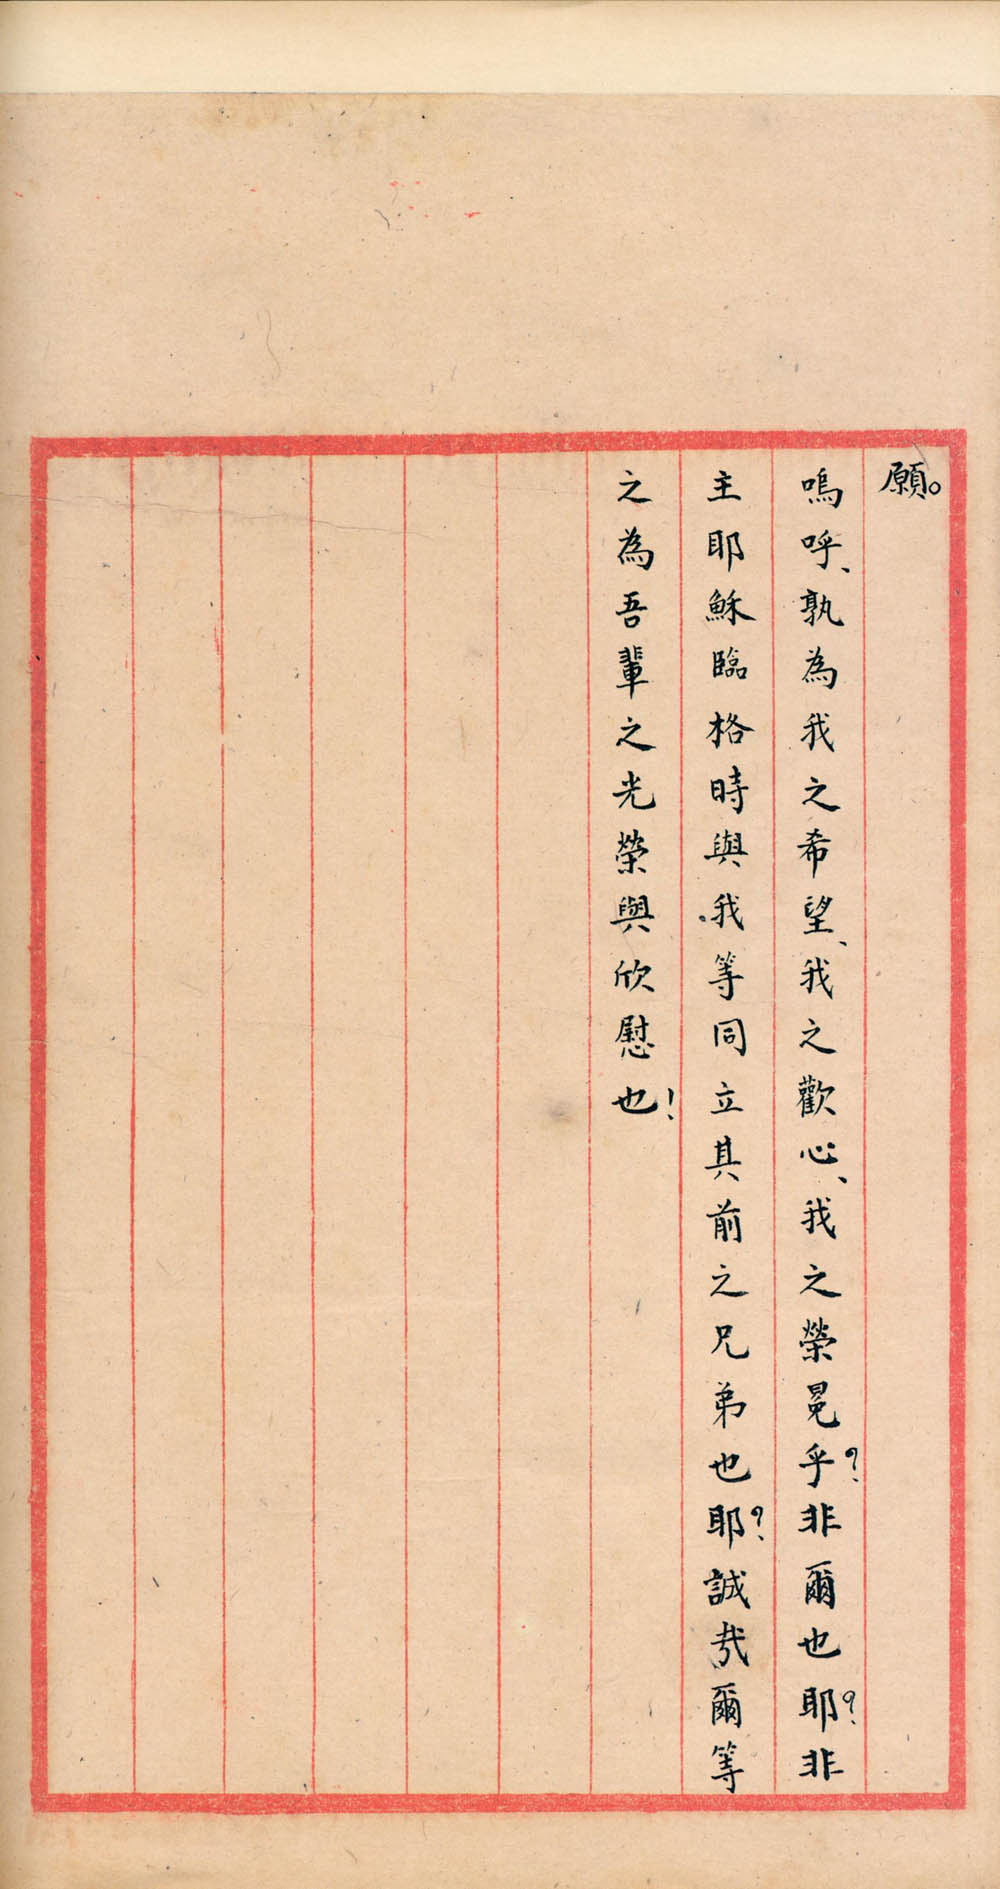 願。
嗚呼、孰為我之希望、我之歡心、我之榮冕乎？非爾也耶？非
主耶穌臨格時與我等同立其前之兄弟也耶？誠哉爾等
之為吾輩之光榮與欣慰也！